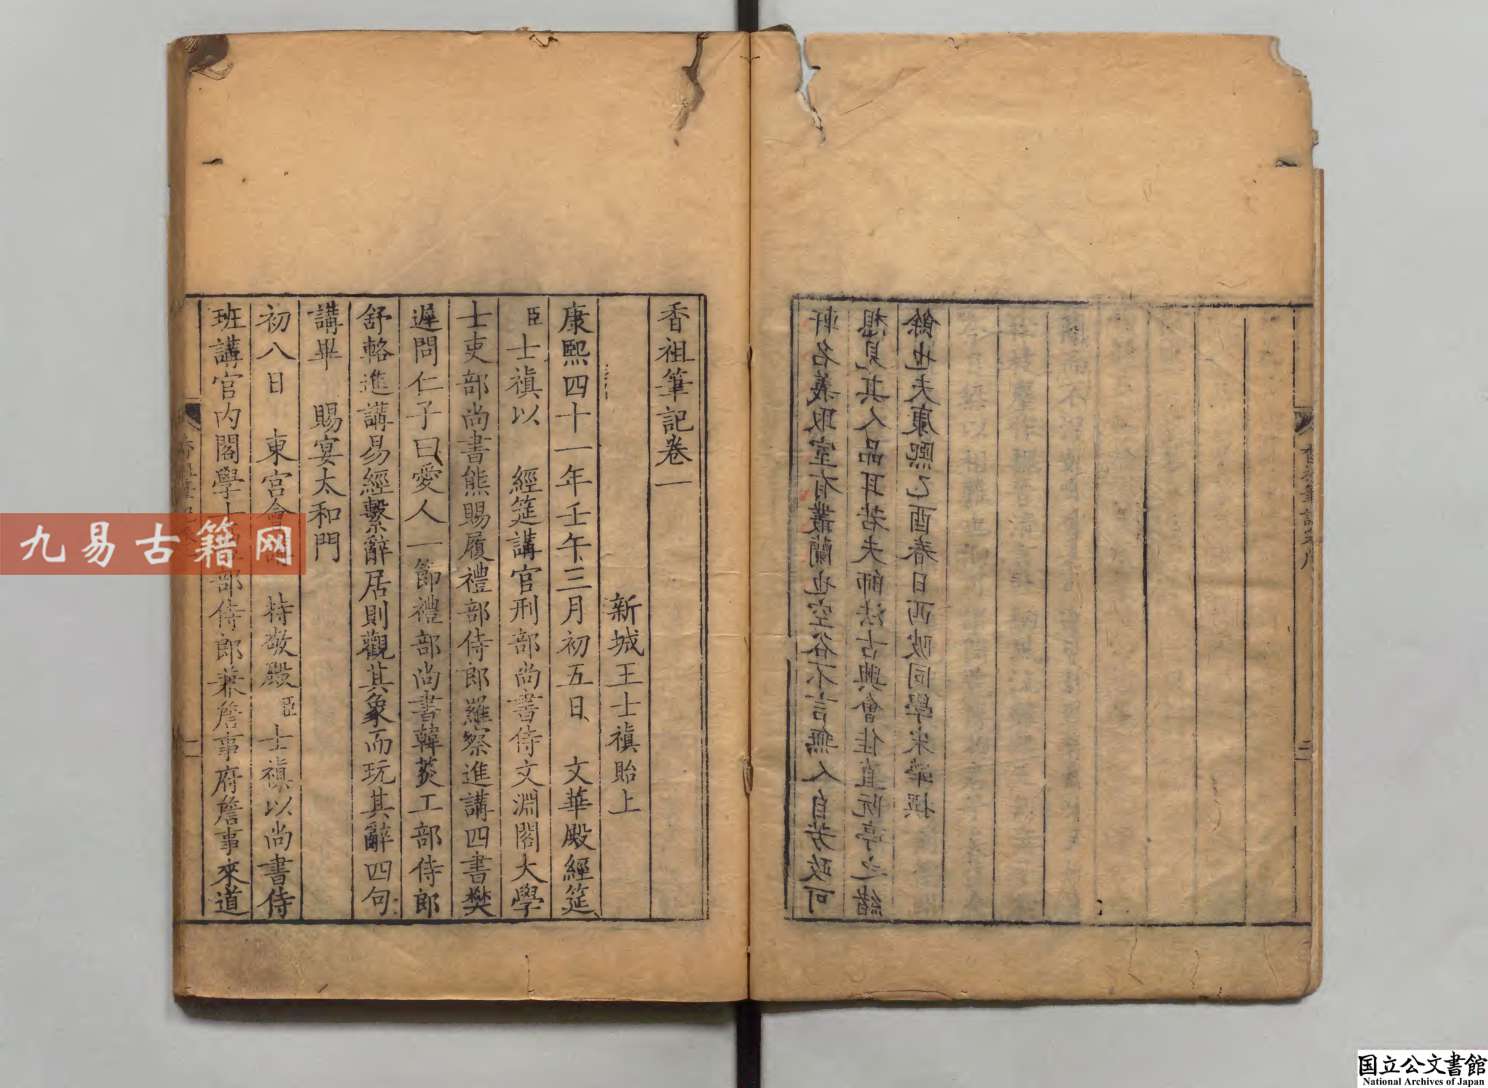 軒名義取室有叢蘭也空谷不言無人自芳政可
想見其人品耳若夫師法古興會佳直阮亭之緒
餘也夫康熙乙酉春日西陂同學宋犖撰
香祖筆記卷一
新城王士禛貽上
康熙四十一年壬午三月初五日　文華殿經筵
臣士禛以　經筵講官刑部尚書侍文淵閣大學
士吏部尚書熊賜履禮部侍郎羅察進講四書樊
遲問仁子曰愛人一節禮部尚書韓菼工部侍郎
舒輅進講易經繫辭居則觀其象而玩其辭四句
講畢　賜宴太和門
初八日　東宮會　特敬殿臣士禛以尚書侍
班講官內閣學士部侍郎兼詹事府詹事來道
九易古籍网
国立公文書館
National Archives of Japan